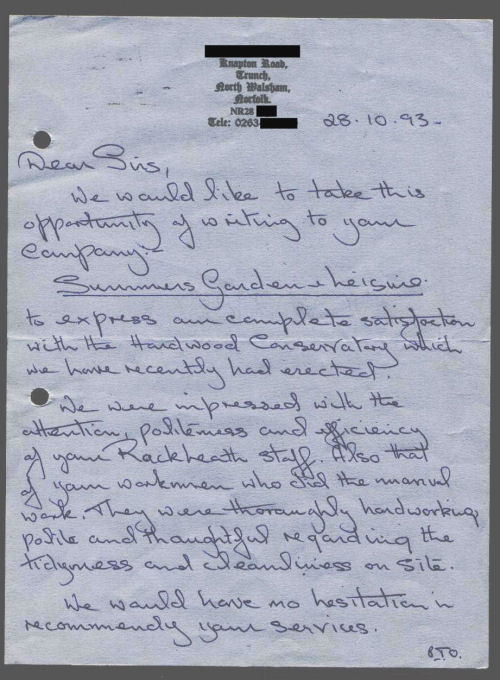 Knapton Road,
Trunch,
North Walsham,
Norfolk.
NR28
Tele: 0263
28.10.93-
Dear Sirs,
We would like to take this
opportunity of writing to your
Company:-
Summers Garden & Leisure.
to express our complete satisfaction
with the Hardwood Conservatory which
we have recently had erected.
We were impressed with the
attention, politeness and efficiency
of your Rackheath staff. Also that
of your workmen who did the manual
work. They were thoroughly hardworking,
polite and thoughtful regarding the
tidyness and cleanliness on site.
We would have no hesitation in
recommending your services.
P.T.O.